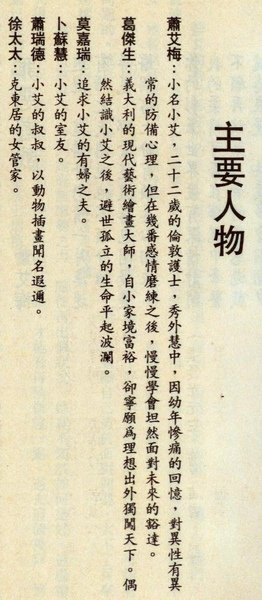 主要人物
蕭艾梅：小名小艾，二十二歲的倫敦護士，秀外慧中，因幼年慘痛的回憶，對異性有異
常的防備心理，但在幾番感情磨練之後，慢慢學會坦然面對未來的豁達。
葛傑生：義大利的現代藝術繪畫大師，自小家境富裕，卻寧願為理想出外獨闖天下。偶
然結識小艾之後，避世孤立的生命平起波瀾。
莫嘉瑞：追求小艾的有婦之夫。
卜蘇慧：小艾的室友。
蕭瑞德：小艾的叔叔，以動物插畫聞名遐邇。
徐太太：克東居的女管家。